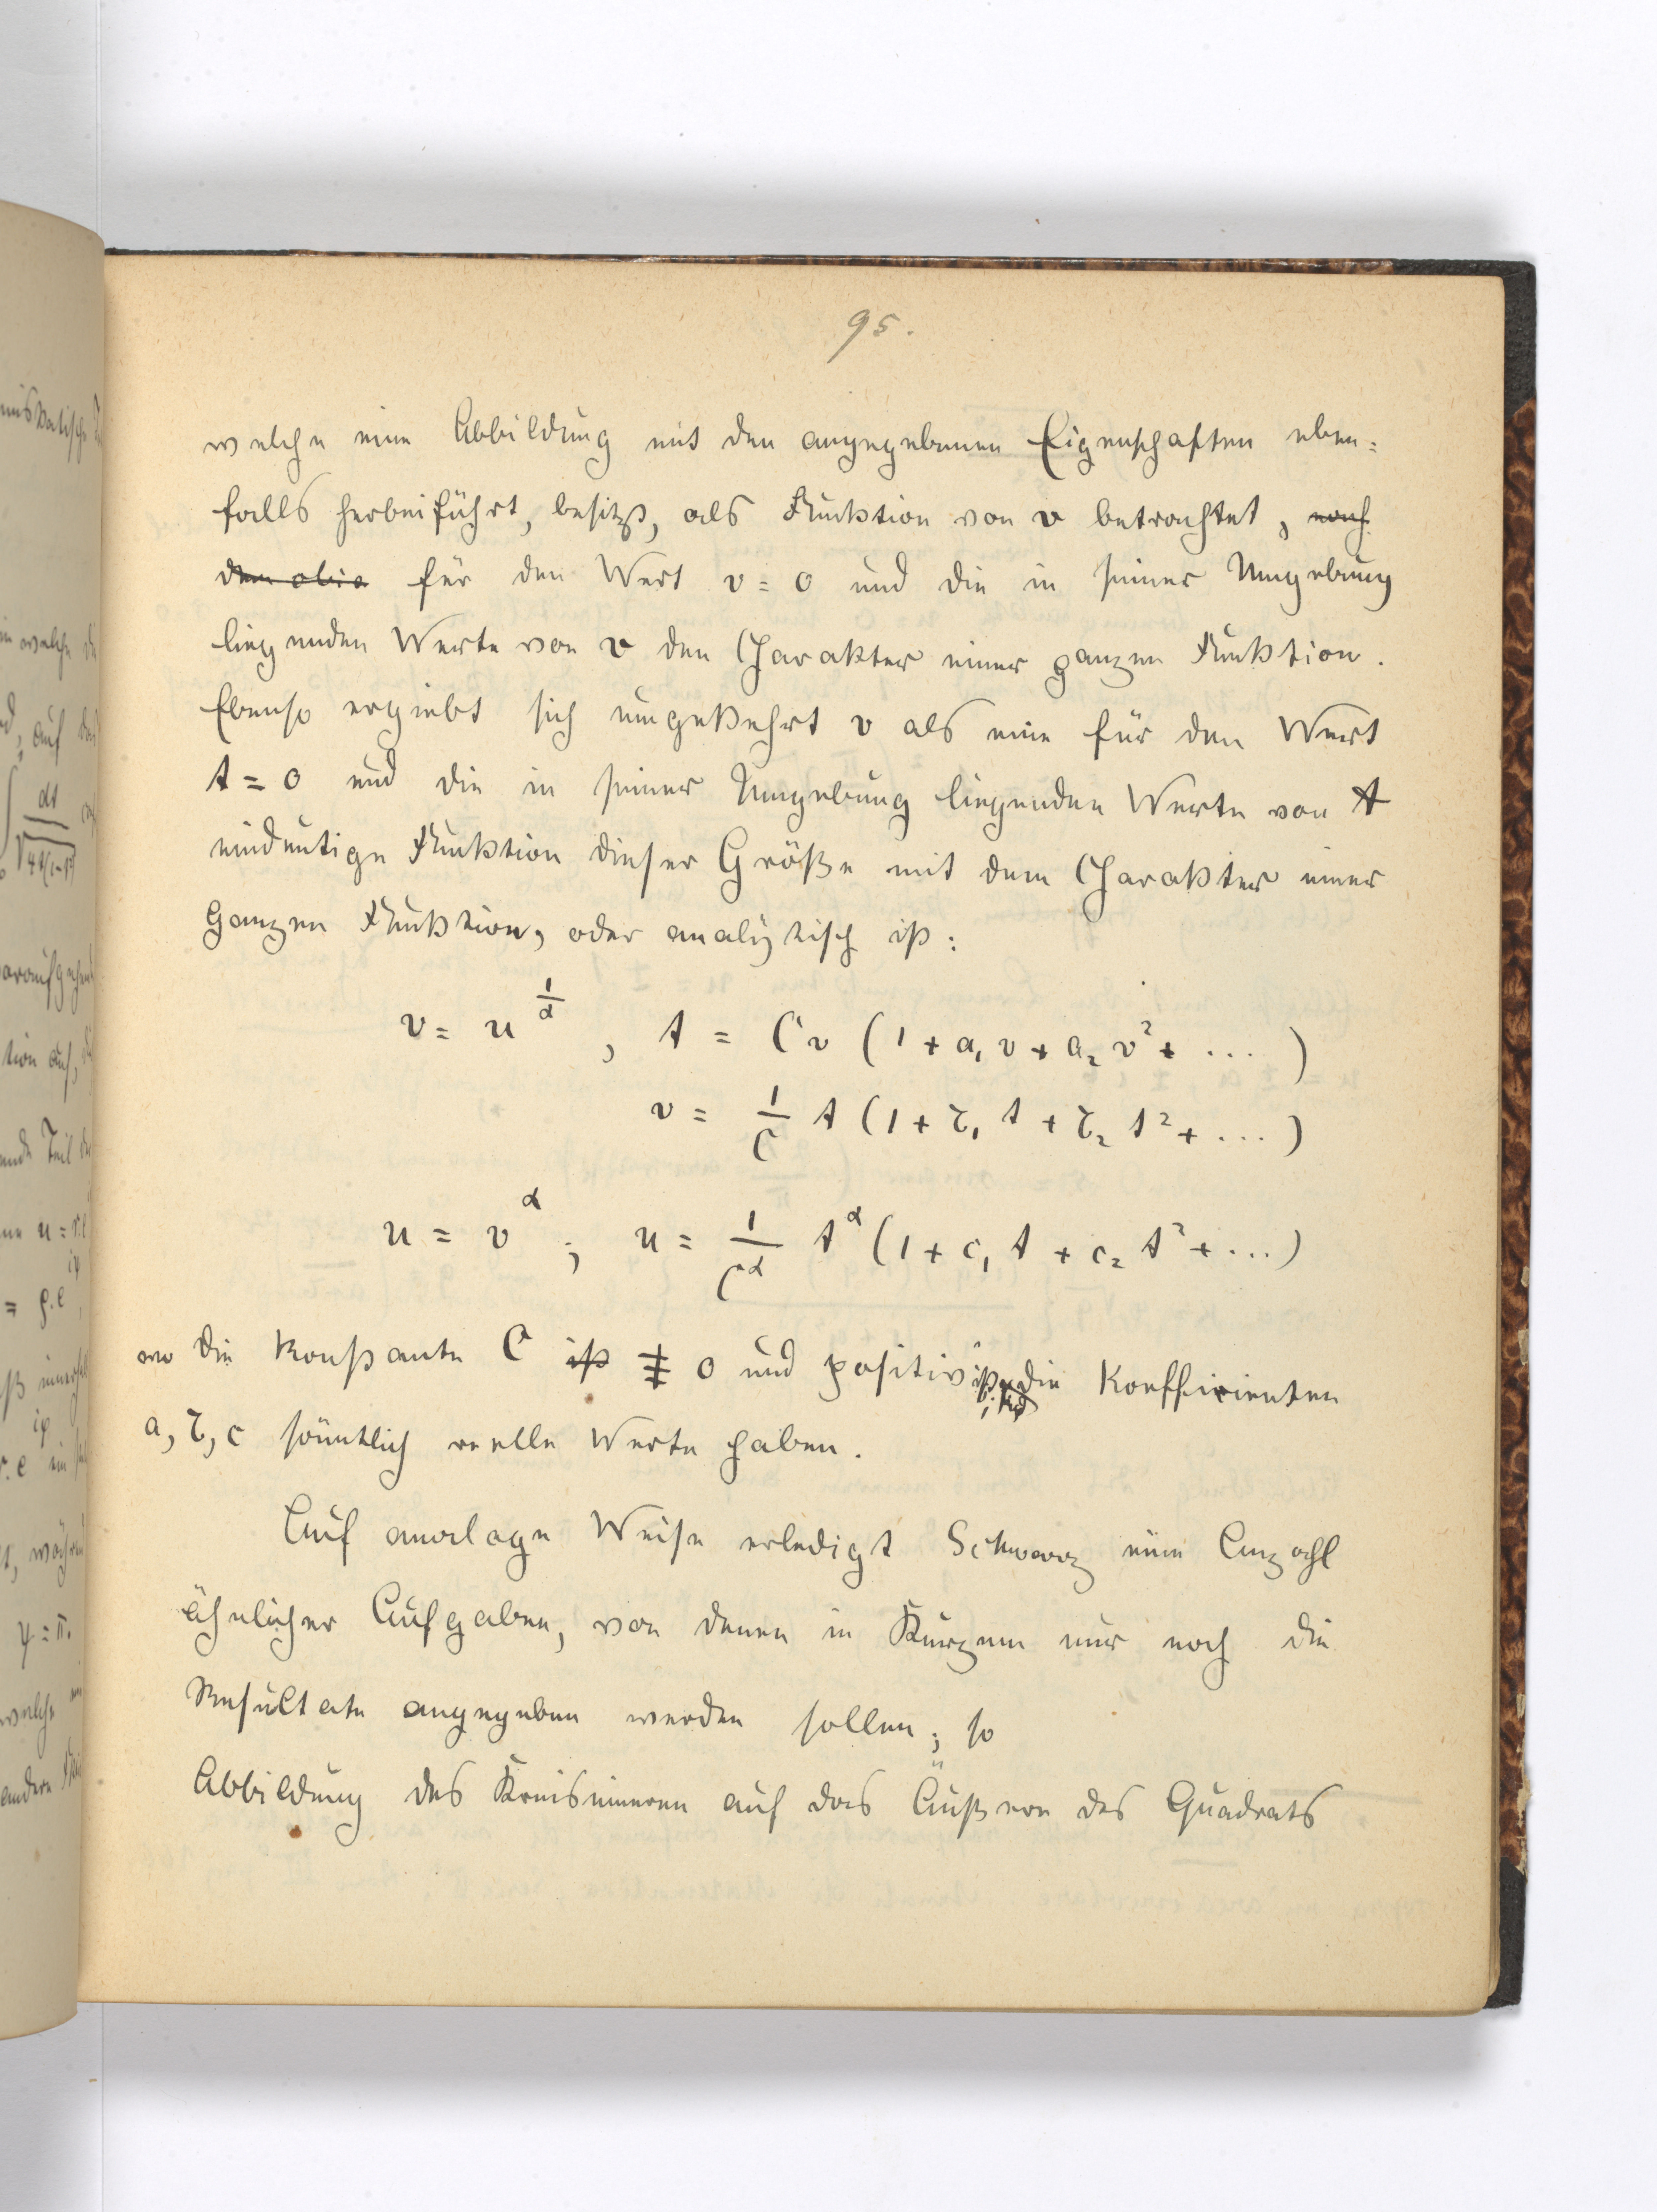 95.
welche eine Abbildung mit den angegebenen Eigenschaften eben=
falls herbeiführt, besitzt, als Funktion von v betrachtet, nach
dem obig für den Wert v = 0 und die in seiner Umgebung
liegenden Werte von v den Charakter einer ganzen Funktion.
Ebenso ergiebt sich umgekehrt v als eine für den Wert
t = 0 und die in seiner Umgebung liegenden Werte von t
eindeutige Funktion dieser Größe mit dem Charakter einer
ganzen Funktion, oder analytisch ist:
v = u^{1/α} , t = C v (1 + a₁ v + a₂ v² + ... )
v = 1/C t (1 + b₁ t + b₂ t² + ... )
u = v^α ; u = 1/C^α t^α (1 + c₁ t + c₂ t² + ... )
wo die Konstante C ist ‡ 0 und positiv ist, die Koeffizienten
a, b, c sämtlich reelle Werte haben.
Auf analoge Weise erledigt Schwarz eine Anzahl
ähnlicher Aufgaben, von denen in Kurzem nur noch die
Resultate angegeben werden sollen; so
Abbildung des Kreisinneren auf das Äußere des Quadrats